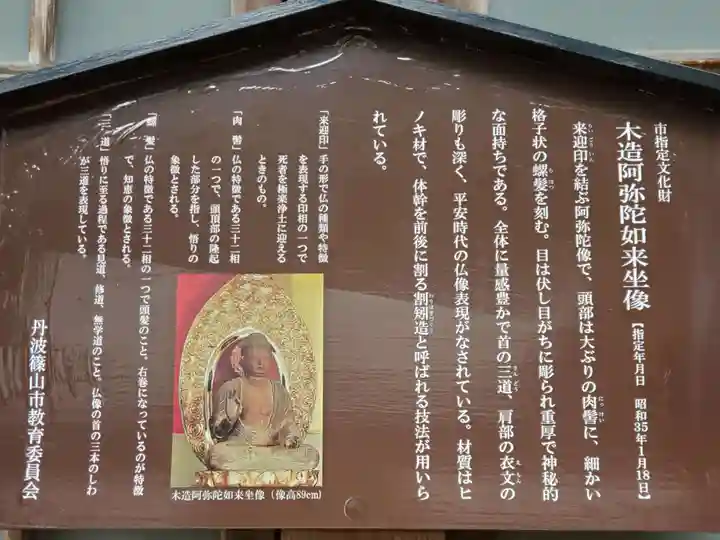 市指定文化財
木造阿弥陀如来坐像【指定年月日 昭和35年1月18日】
来迎印を結ぶ阿弥陀像で、頭部は大ぶりの肉髻に、細かい
格子状の螺髪を刻む。目は伏し目がちに彫られ重厚で神秘的
な面持ちである。全体に量感豊かで首の三道、肩部の衣文の
彫りも深く、平安時代の仏像表現がなされている。材質はヒ
ノキ材で、体幹を前後に割る割矧造と呼ばれる技法が用いら
れている。
「来迎印」手の形で仏の種類や特徴
を表現する印相の一つで
死者を極楽浄土に迎える
ときのもの。
「肉髻」仏の特徴である三十二相
の一つで、頭頂部の隆起
した部分を指し、悟りの
象徴とされる。
「螺髪」仏の特徴である三十二相の一つで頭髪のこと。右巻になっているのが特徴
で、知恵の象徴とされる。
「三道」悟りに至る過程である見道、修道、無学道のこと。仏像の首の三本のしわ
が三道を表現している。
丹波篠山市教育委員会
木造阿弥陀如来坐像(像高89cm)